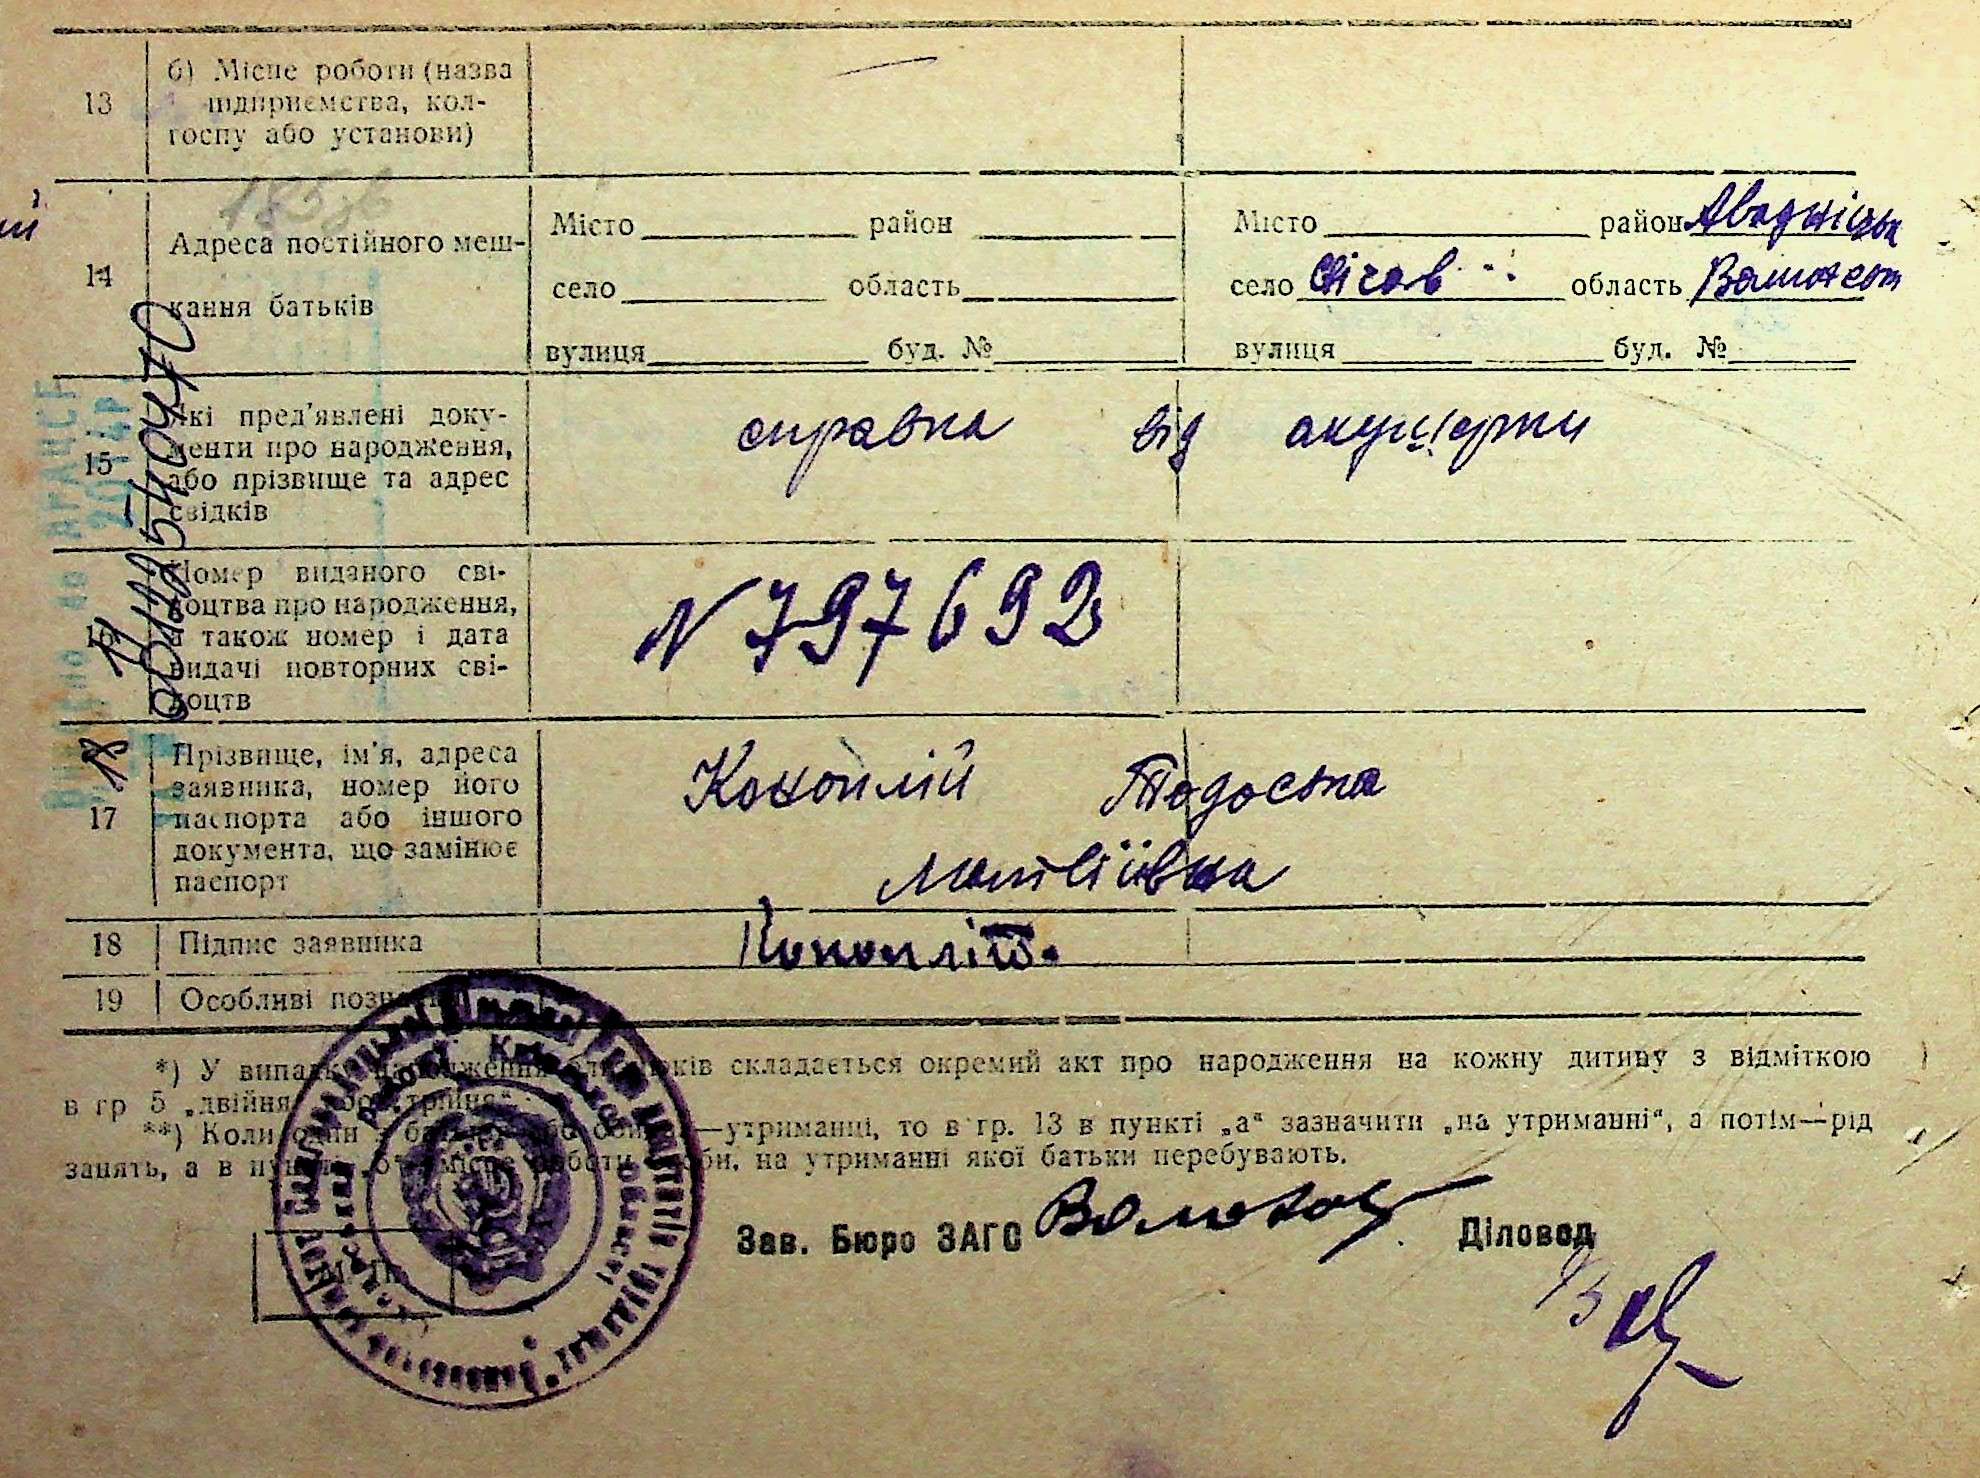 13
б) Місце роботи (назва
підприємства, кол-
госпу або установи)
14
Адреса постійного меш-
кання батьків
Місто район
село область
вулиця буд. №
Місто район
село Січов область
вулиця буд. №
15
Які пред'явлені доку-
менти про народження,
або прізвище та адрес
свідків
справка від акушерки
16
Номер виданого сві-
доцтва про народження,
а також номер і дата
видачі повторних сві-
доцтв
N 797692
17
Прізвище, ім'я, адреса
заявника, номер його
паспорта або іншого
документа, що замінює
паспорт
Кокоплій Тодоська
Матвіївна
18 Підпис заявника
19 Особливі позначки
*) У випадку народження близнюків складається окремий акт про народження на кожну дитину з відміткою
в гр 5 „двійня“ або „трійня“.
**) Коли один з батьків або обидва—утриманці, то в гр. 13 в пункті „а“ зазначити „на утриманні“, а потім—рід
занять, а в пункті „б“ місце роботи особи, на утриманні якої батьки перебувають.
Зав. Бюро ЗАГС
Діловод